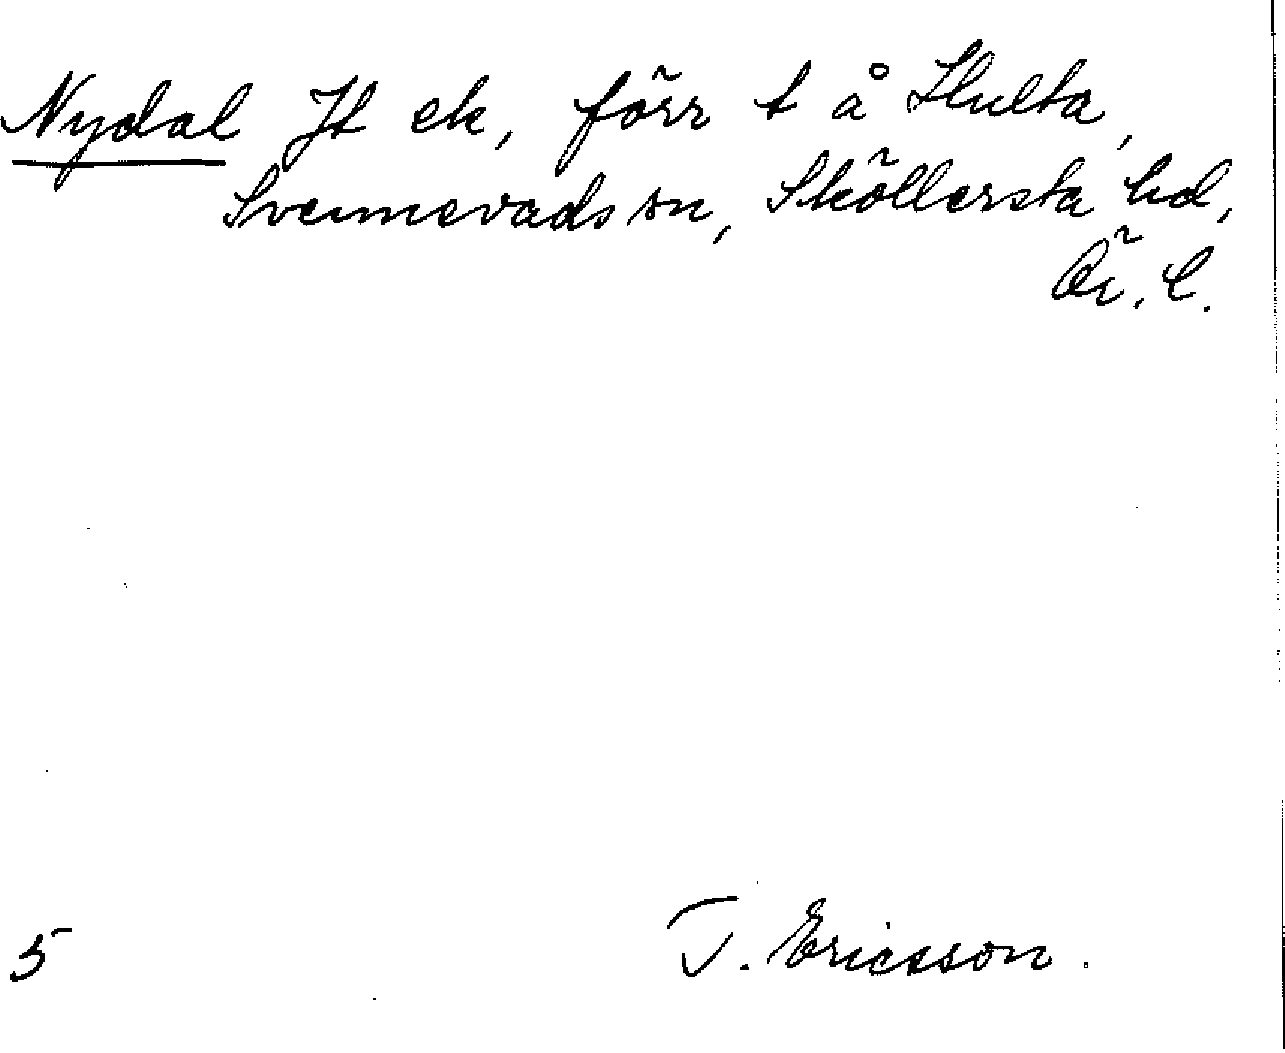 Nydal Jt ek, förr t å Hulta,
Svennevads sn, Sköllersta hd,
Ör. l.
5 T. Ericsson.